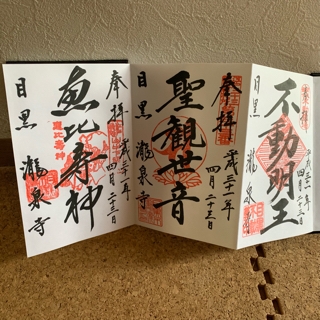 奉拝
不動明王
平成三十一年
四月二十三日
目黒 瀧泉寺
奉拝
聖観世音
平成三十一年
四月二十三日
目黒 瀧泉寺
奉拝
恵比寿神
平成三十一年
四月二十三日
目黒 瀧泉寺